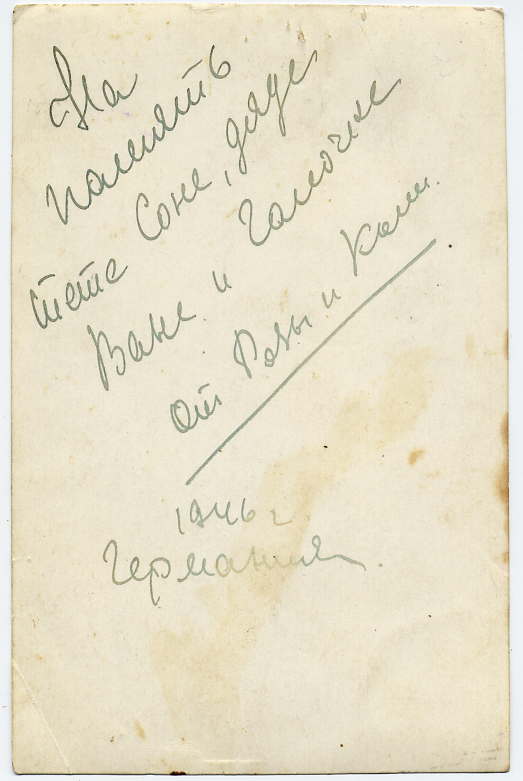 На
память
тете Соне, дяде
Ване и Галочке
от Розы и Коли.
1946 г
Германия.